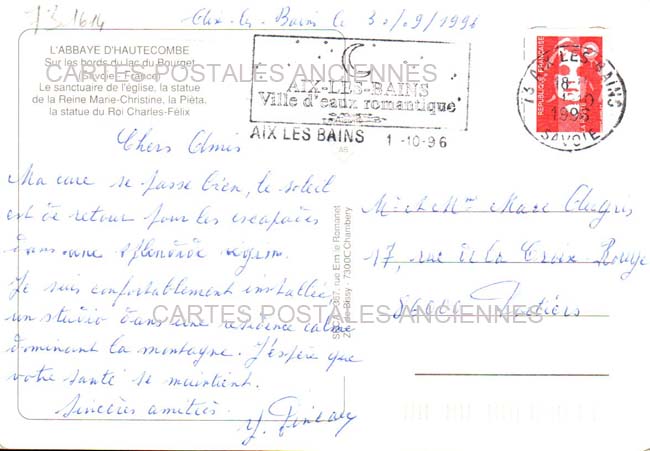 73.1614
Aix-les-Bains le 30/09/1996
L'ABBAYE D'HAUTECOMBE
Sur les bords du lac du Bourget
(Savoie - France)
Le sanctuaire de l'église, la statue
de la Reine Marie-Christine, la Piéta,
la statue du Roi Charles-Félix
CARTES POSTALES ANCIENNES
AIX-LES-BAINS
Ville d'eaux romantique
AIX LES BAINS 1-10-96
RÉPUBLIQUE FRANÇAISE
73 AIX LES BAINS
18
1996
SAVOIE
Chers Amis
Ma cure se passe bien, le soleil
est de retour pour les escapades
dans une splendide région.
Je suis confortablement installée
un studio dans une résidence calme
dominant la montagne. J'espère que
votre santé se maintient.
Sincères amitiés.
Mr et Mme
17, rue de la Croix-Rouge
86000 Poitiers
CARTES POSTALES ANCIENNES
rue Ernest Romanet
73000 Chambéry